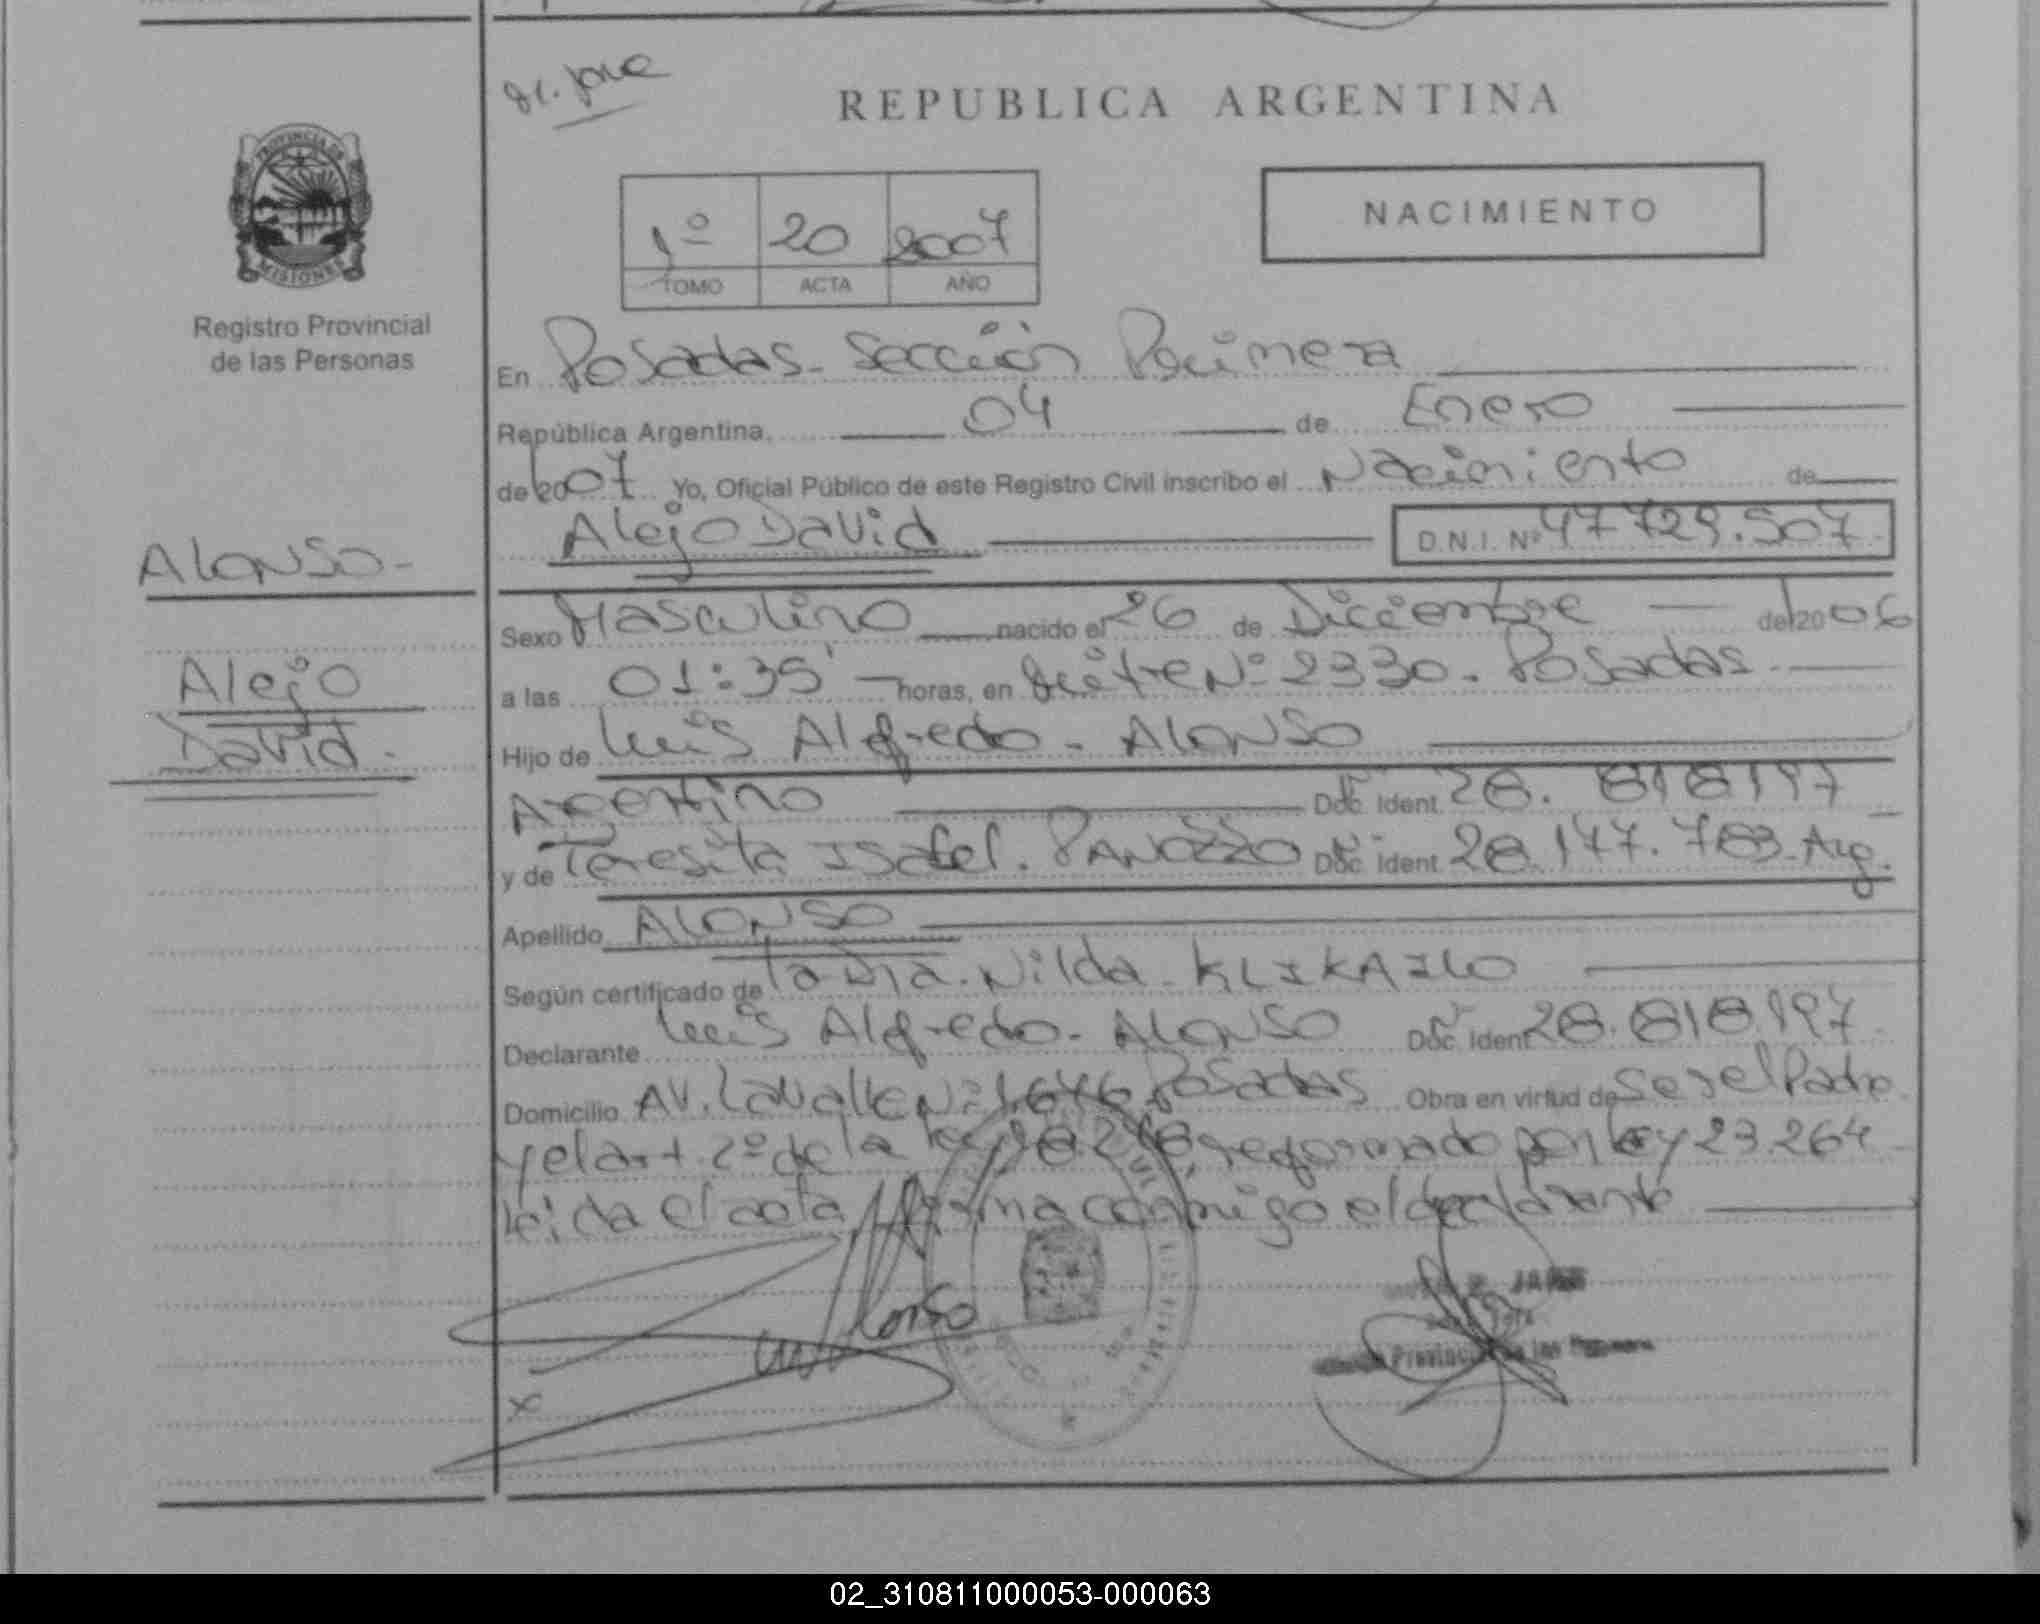 REPUBLICA ARGENTINA
PROVINCIA DE
MISIONES
Registro Provincial
de las Personas
NACIMIENTO
1º 20 2007
TOMO ACTA AÑO
En Posadas - Sección Primera
República Argentina, 04 de Enero
de 2007 Yo, Oficial Público de este Registro Civil inscribo el Nacimiento de
Alejo David D.N.I. Nº 47729.507
ALONSO-
Alejo
David.
Sexo Masculino nacido el 26 de Diciembre de 2006
a las 01:35' horas, en Nº 2330. Posadas
Hijo de Luis Alfredo - ALONSO
Argentino Doc. Ident. 28. 818197
y de Teresita Isabel. PANOZZO Doc. Ident. 28.147.783-Arg.
Apellido ALONSO
Según certificado de la Dra. Nilda - KLIKAILO
Declarante Luis Alfredo - ALONSO Doc. Ident. 28.818.197
Domicilio AV. Lavalle Nº 1.646 Posadas Obra en virtud de ser el Padre
y el art. 2º de la ley 18248, reformado por ley 23.264
leida el acta, firma conmigo el declarante
02_310811000053-000063